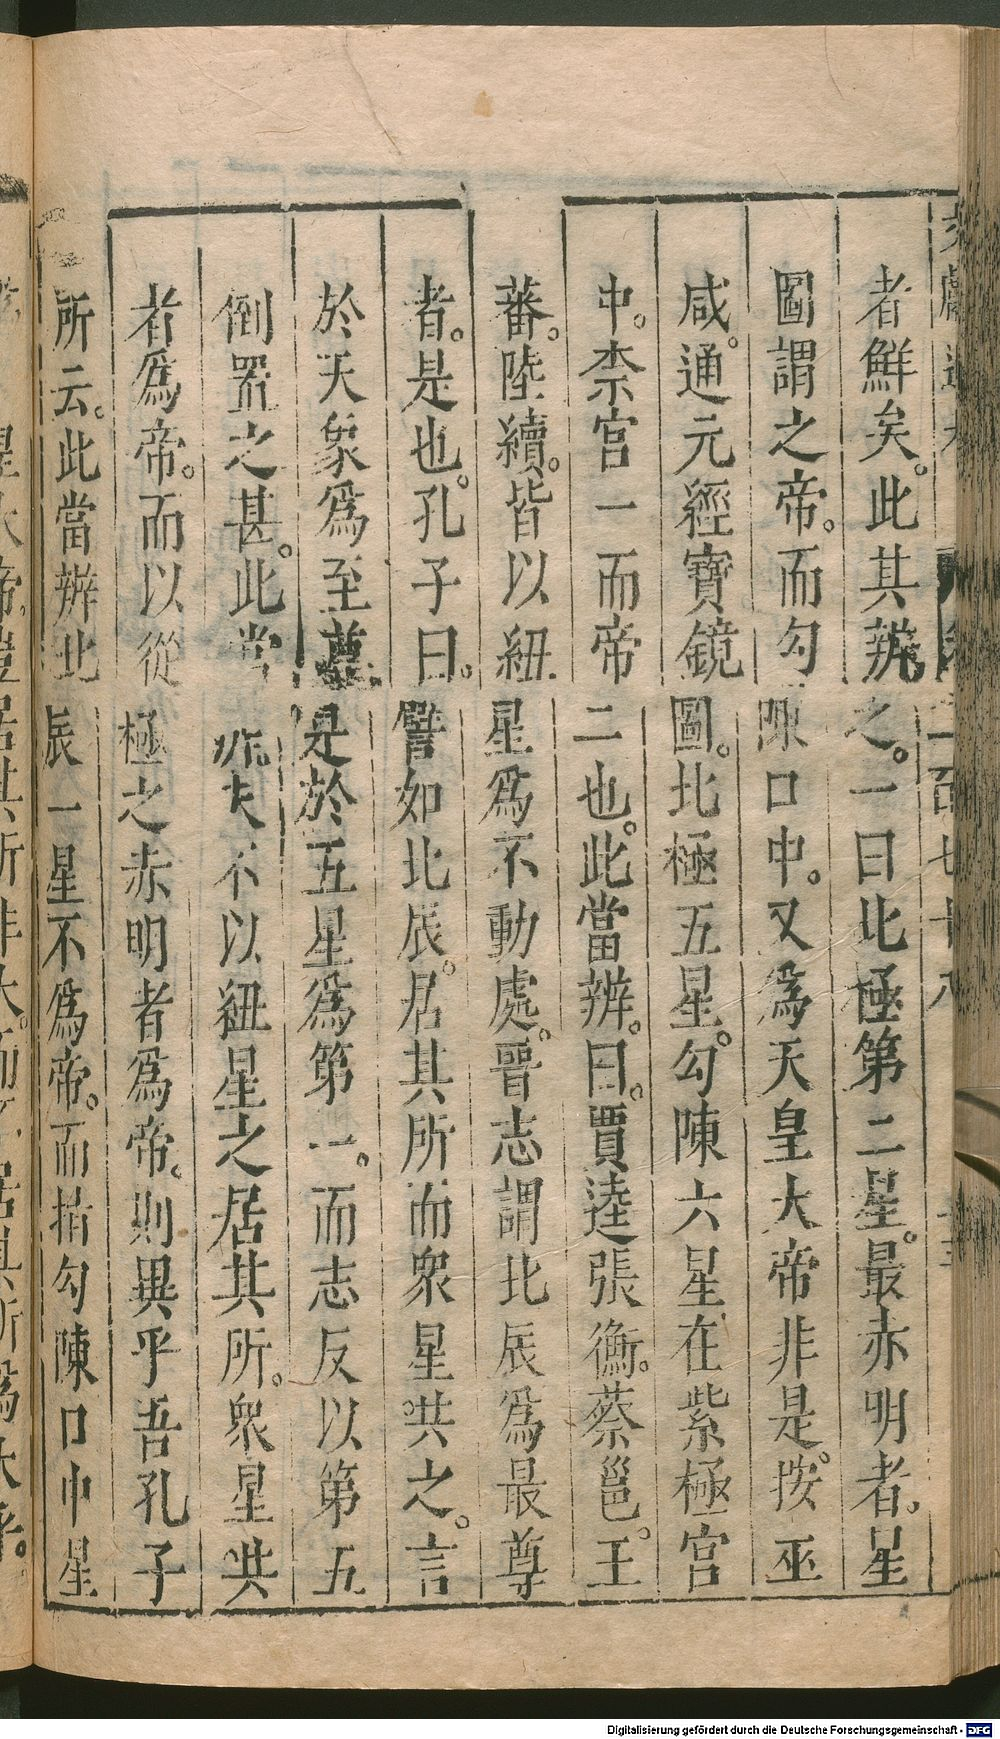 者鮮矣。此其辨之。一曰北極第二星。最赤明者。星
圖謂之帝。而勾陳口中。又為天皇大帝非是。按巫
咸。通元經寶鏡圖。北極五星。勾陳六星在紫極宮
中。柰宮一而帝二也。此當辨。曰。賈逵張衡。蔡邕。王
蕃。陸續。皆以紐星爲不動處。晉志謂北辰爲最尊
者。是也。孔子曰。譬如北辰。居其所而衆星拱之。言
於天象爲至尊是於五星爲第一。而志反以第五
倒置之甚。此當 夫不以紐星之居其所。衆星拱
者爲帝。而以從極之赤明者爲帝。則異乎吾孔子
所云。此當辨北辰一星不爲帝。而指勾陳口中星